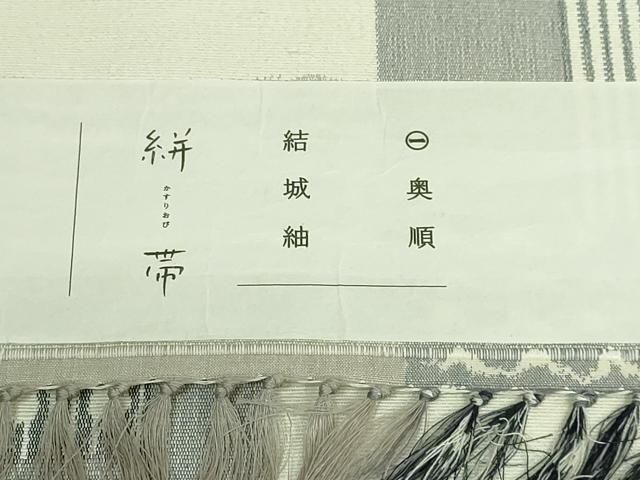 ㊀奥順
結城紬
絣帯
かすりおび